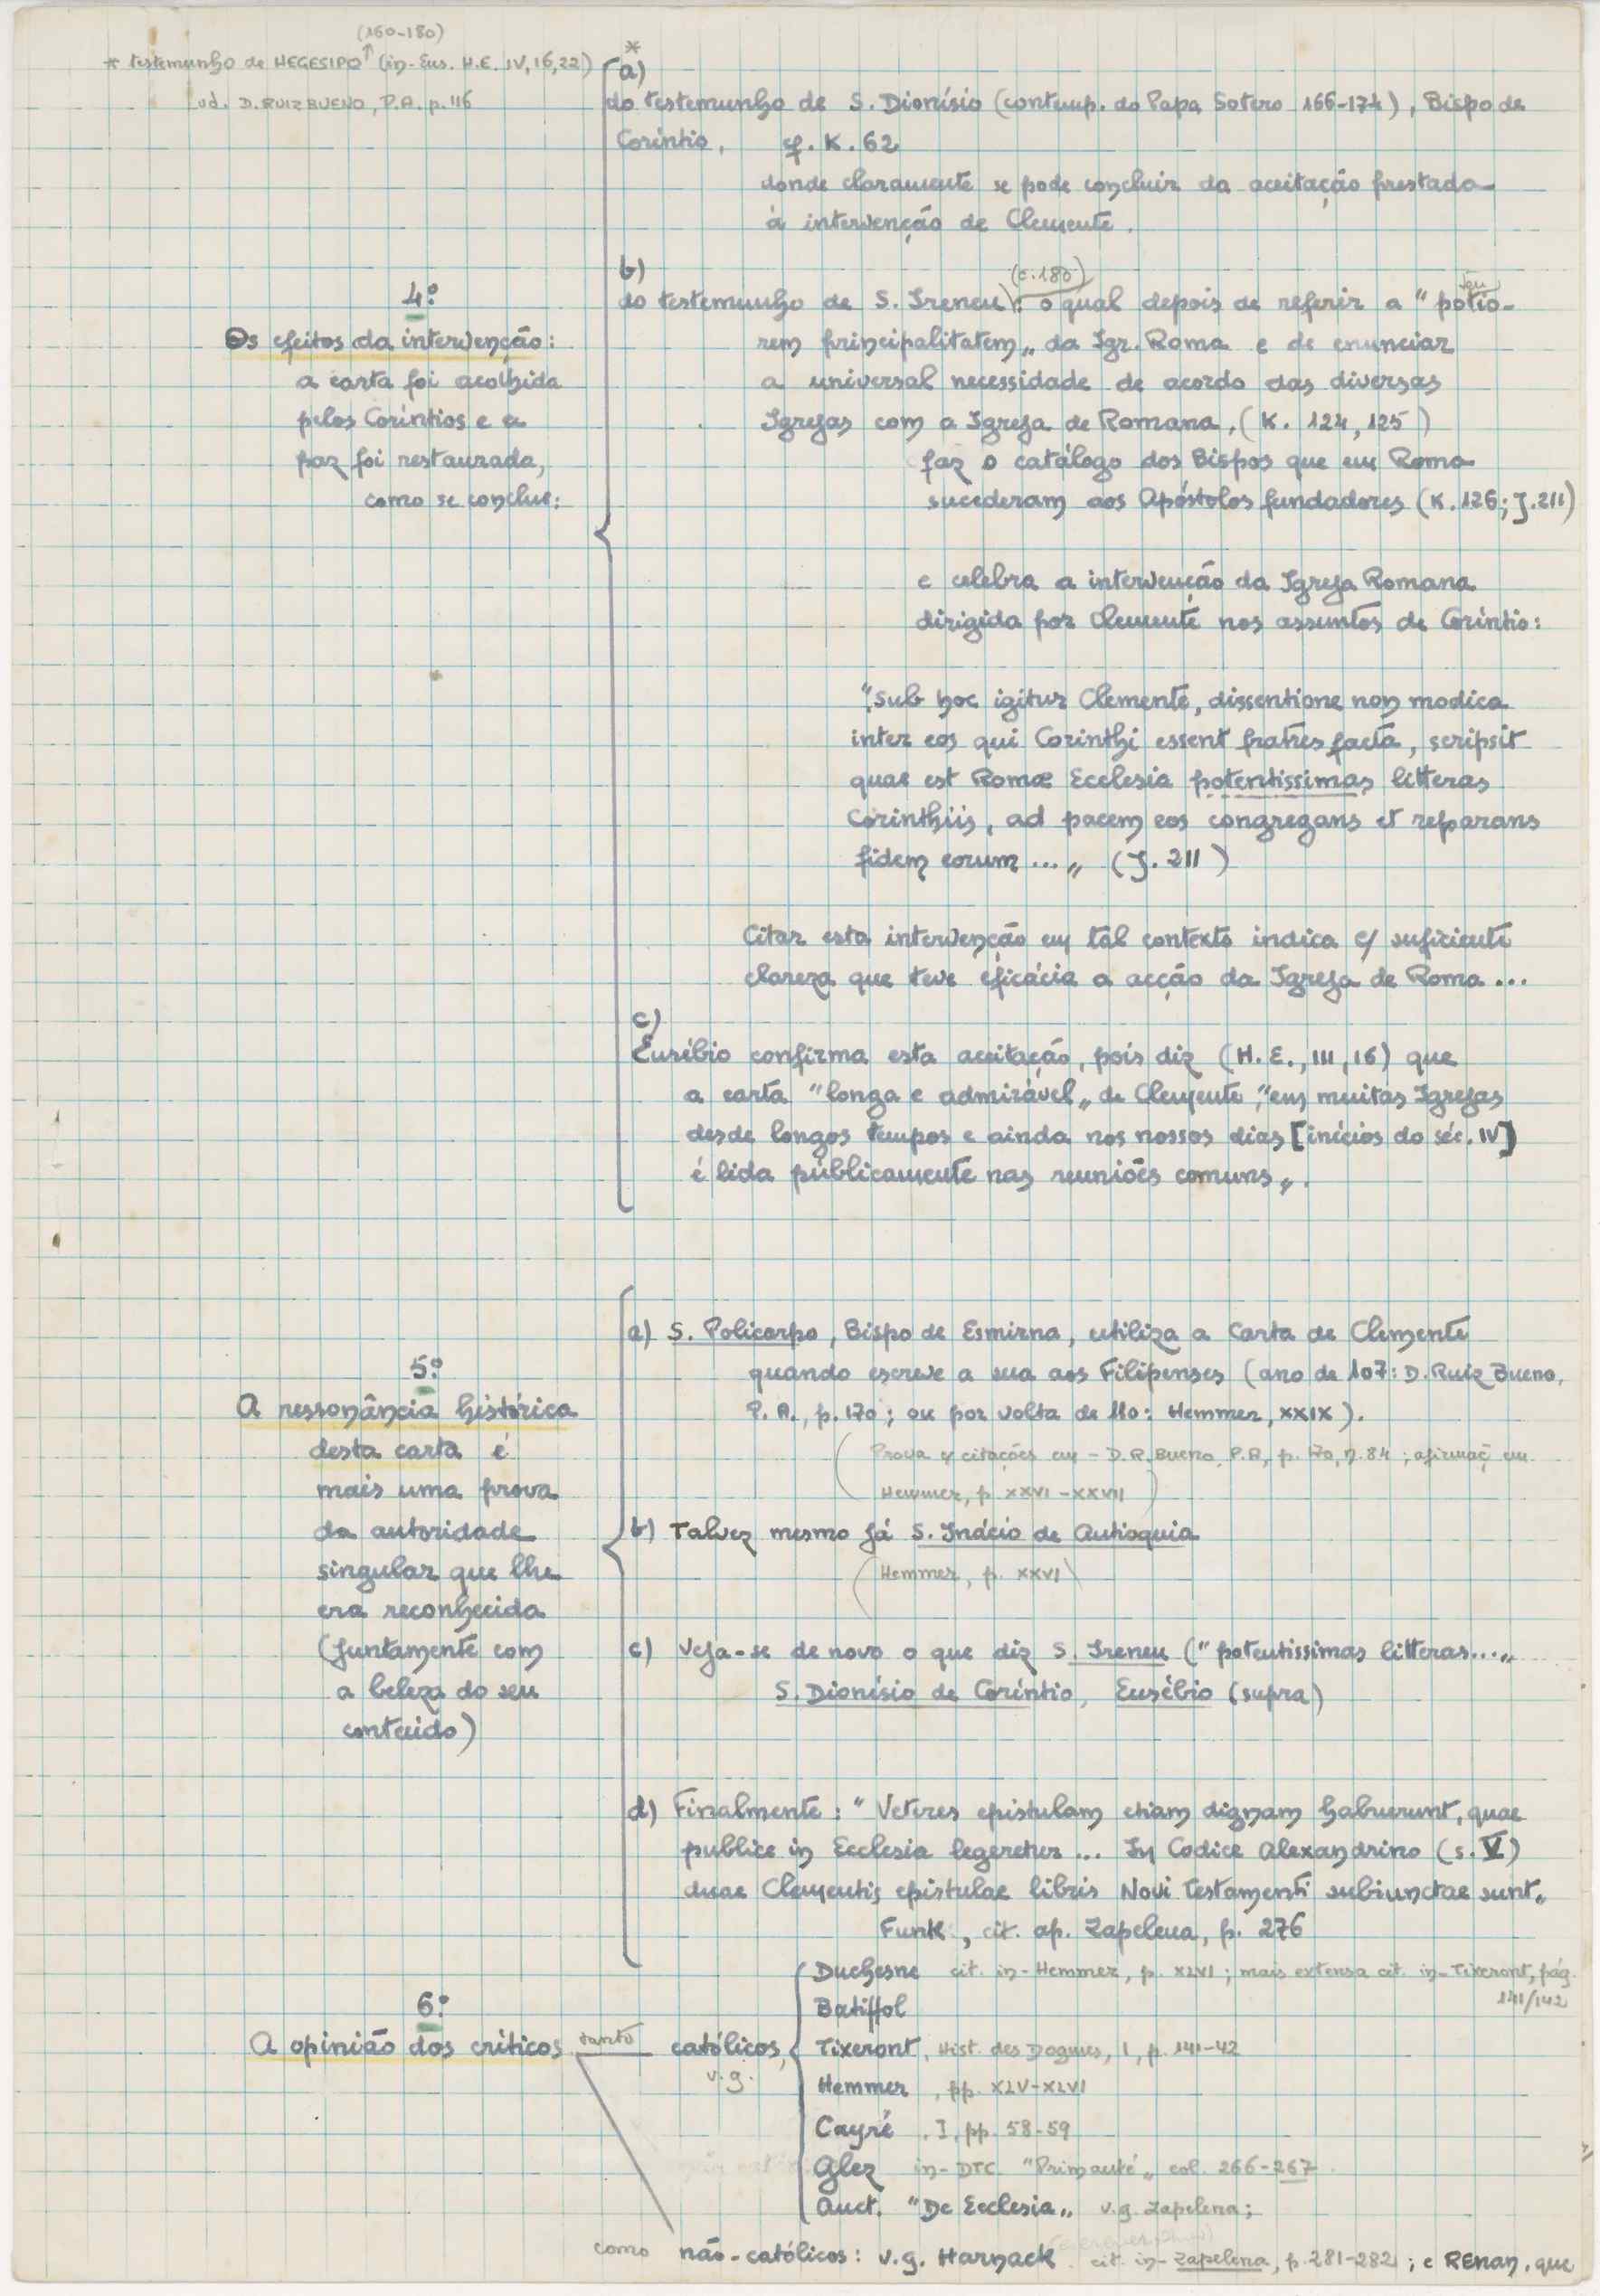 (160-180)
* testemunho de HEGESIPO ↑ (in-Eus. H.E. IV,16,22)
vd. D. RUIZ BUENO, P.A. p.116
*
a)
do testemunho de S. Dionísio (contemp. do Papa Sotero 166-174), Bispo de
Coríntio, cf. K. 62
donde claramente se pode concluir da aceitação prestada
à intervenção de Clemente.
4º
Os efeitos da intervenção:
a carta foi acolhida
pelos Coríntios e a
paz foi restaurada,
como se conclue:
b)
(c.180)
do testemunho de S. Ireneu: o qual depois de referir a "potio-
rem principalitatem„ da Igr. Roma e de enunciar
a universal necessidade de acordo das diversas
Igrejas com a Igreja de Romana, (K. 124, 125)
faz o catálogo dos Bispos que em Roma
sucederam aos Apóstolos fundadores (K. 126; J. 211)
e celebra a intervenção da Igreja Romana
dirigida por Clemente nos assuntos de Coríntio:
"Sub hoc igitur Clemente, dissentione non modica
inter eos qui Corinthi essent fratres facta, scripsit
quae est Romæ Ecclesia potentissimas litteras
Corinthiis, ad pacem eos congregans et reparans
fidem eorum ...„ (J. 211)
Citar esta intervenção em tal contexto indica c/ suficiente
clareza que teve eficácia a acção da Igreja de Roma ...
c)
Eusébio confirma esta aceitação, pois diz (H. E., III, 16) que
a carta "longa e admirável„ de Clemente, "em muitas Igrejas
desde longos tempos e ainda nos nossos dias [inícios do séc. IV]
é lida públicamente nas reuniões comuns„.
5º
A ressonância histórica
desta carta é
mais uma prova
da autoridade
singular que lhe
era reconhecida
(juntamente com
a beleza do seu
conteúdo)
a) S. Policarpo, Bispo de Esmirna, utiliza a Carta de Clemente
quando escreve a sua aos Filipenses (ano de 107: D. Ruiz Bueno,
P. A., p. 170; ou por volta de 110: Hemmer, XXIX).
(Prova citações em - D. R. Bueno, P.A, p. 170, n. 84; afirmaç em
Hemmer, p. XXVI - XXVII)
b) Talvez mesmo já S. Inácio de Antioquia
(Hemmer, p. XXVI)
c) Veja-se de novo o que diz S. Ireneu ("potentissimas litteras...„
S. Dionísio de Coríntio, Eusébio (supra)
d) Finalmente: "Veteres epistulam etiam dignam habuerunt, quae
publice in Ecclesia legeretur ... In Codice Alexandrino (s. V)
duae Clementis epistulae libris Novi Testamenti subiunctae sunt„
Funk, cit. ap. Zapelena, p. 276
6º
A opinião dos críticos tanto católicos,
v.g.
Duchesne cit. in-Hemmer, p. XLVI; mais extensa cit. in-Tixeront, pág.
141/142
Batiffol
Tixeront, Hist. des Dogmes, I, p. 141-42
Hemmer, pp. XLV-XLVI
Cayré, I, pp. 58-59
Glez in-DTC. "Primauté„ col. 266-267
Auct. "De Ecclesia„ v.g. Zapelena;
como não-católicos: v.g. Harnack cit. in-Zapelena, p. 281-282; e REnan, que